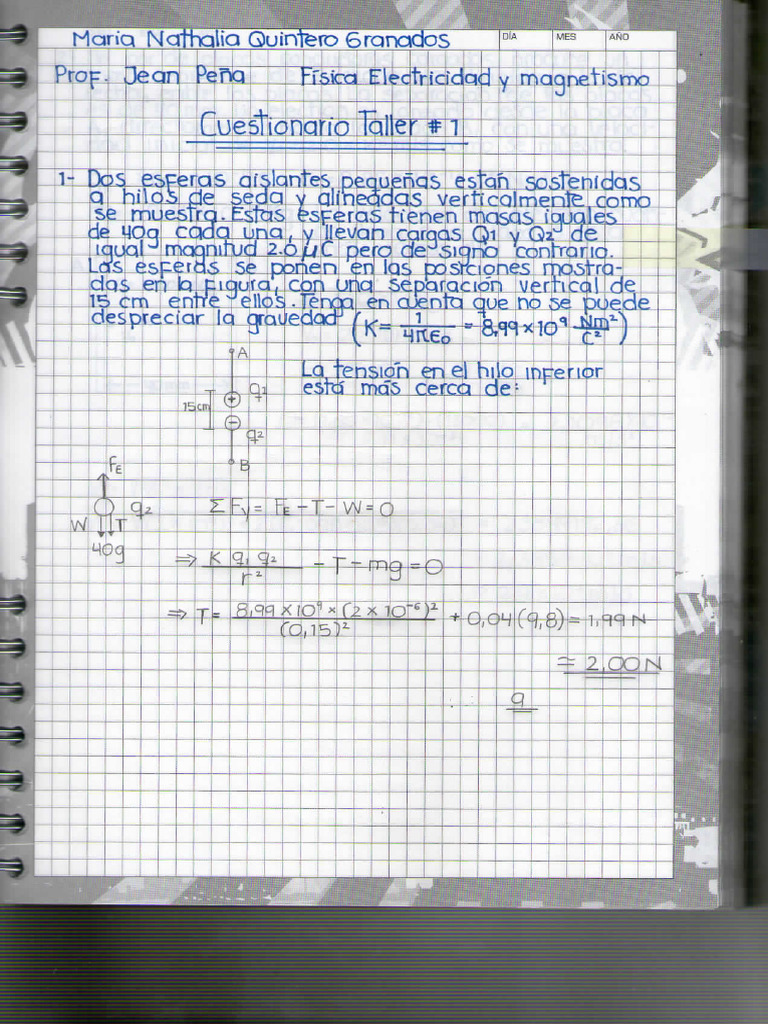 Maria Nathalia Quintero Granados DÍA MES AÑO
Prof. Jean Peña Física Electricidad y magnetismo
Cuestionario Taller # 1
1- Dos esferas aislantes pequeñas están sostenidas
a hilos de seda y alineadas verticalmente como
se muestra. Estas esferas tienen masas iguales
de 40g cada una, y llevan cargas Q1 y Q2 de
igual magnitud 2.0 μC pero de signo contrario.
Las esferas se ponen en las posiciones mostra-
das en la figura, con una separación vertical de
15 cm entre ellos. Tenga en cuenta que no se puede
despreciar la gravedad (K = 1/4πε0 = 8,99 × 10⁹ Nm²/C²)
A
La tensión en el hilo inferior
está más cerca de:
15cm + q1
− q2
B
FE
q2
W T
40g
ΣFy = FE − T − W = 0
⇒ K q1 q2 / r² − T − mg = 0
⇒ T = 8,99 × 10⁹ × (2 × 10⁻⁶)² / (0,15)² + 0,04 (9,8) = 1,99 N
≃ 2,00 N